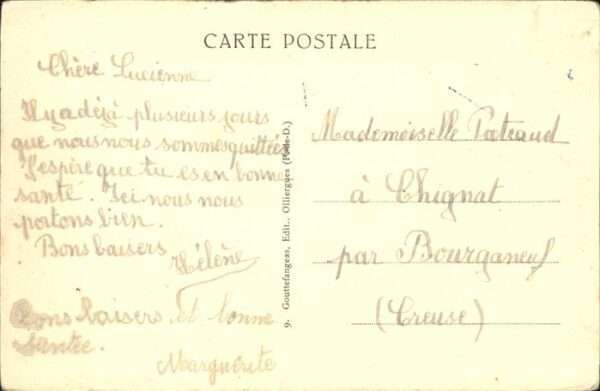 CARTE POSTALE
Chère Lucienne
Il y a déjà plusieurs jours
que nous nous sommes quittées
J'espère que tu es en bonne
santé. Ici nous nous
portons bien.
Bons baisers
Hélène
Bons baisers. Et bonne
santée.
Marguerite
9. Gouttefangeas, Edit., Olliergues (P.-de-D.)
Mademoiselle Pateaud
à Chignat
par Bourganeuf
(Creuse)